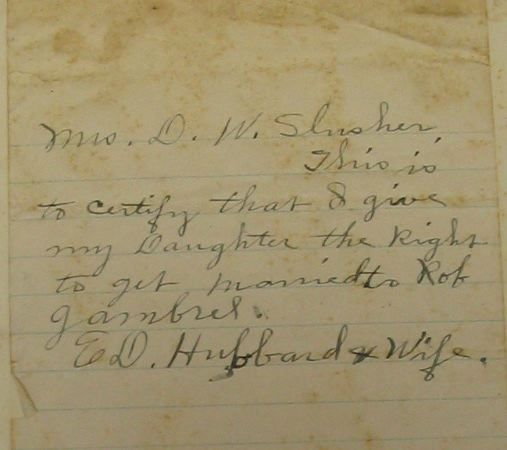 Mrs. D. W. Slusher,
This is
to certify that I give
my Daughter the Right
to get married to Rob
gambrel.
E D. Hubbard & Wife.